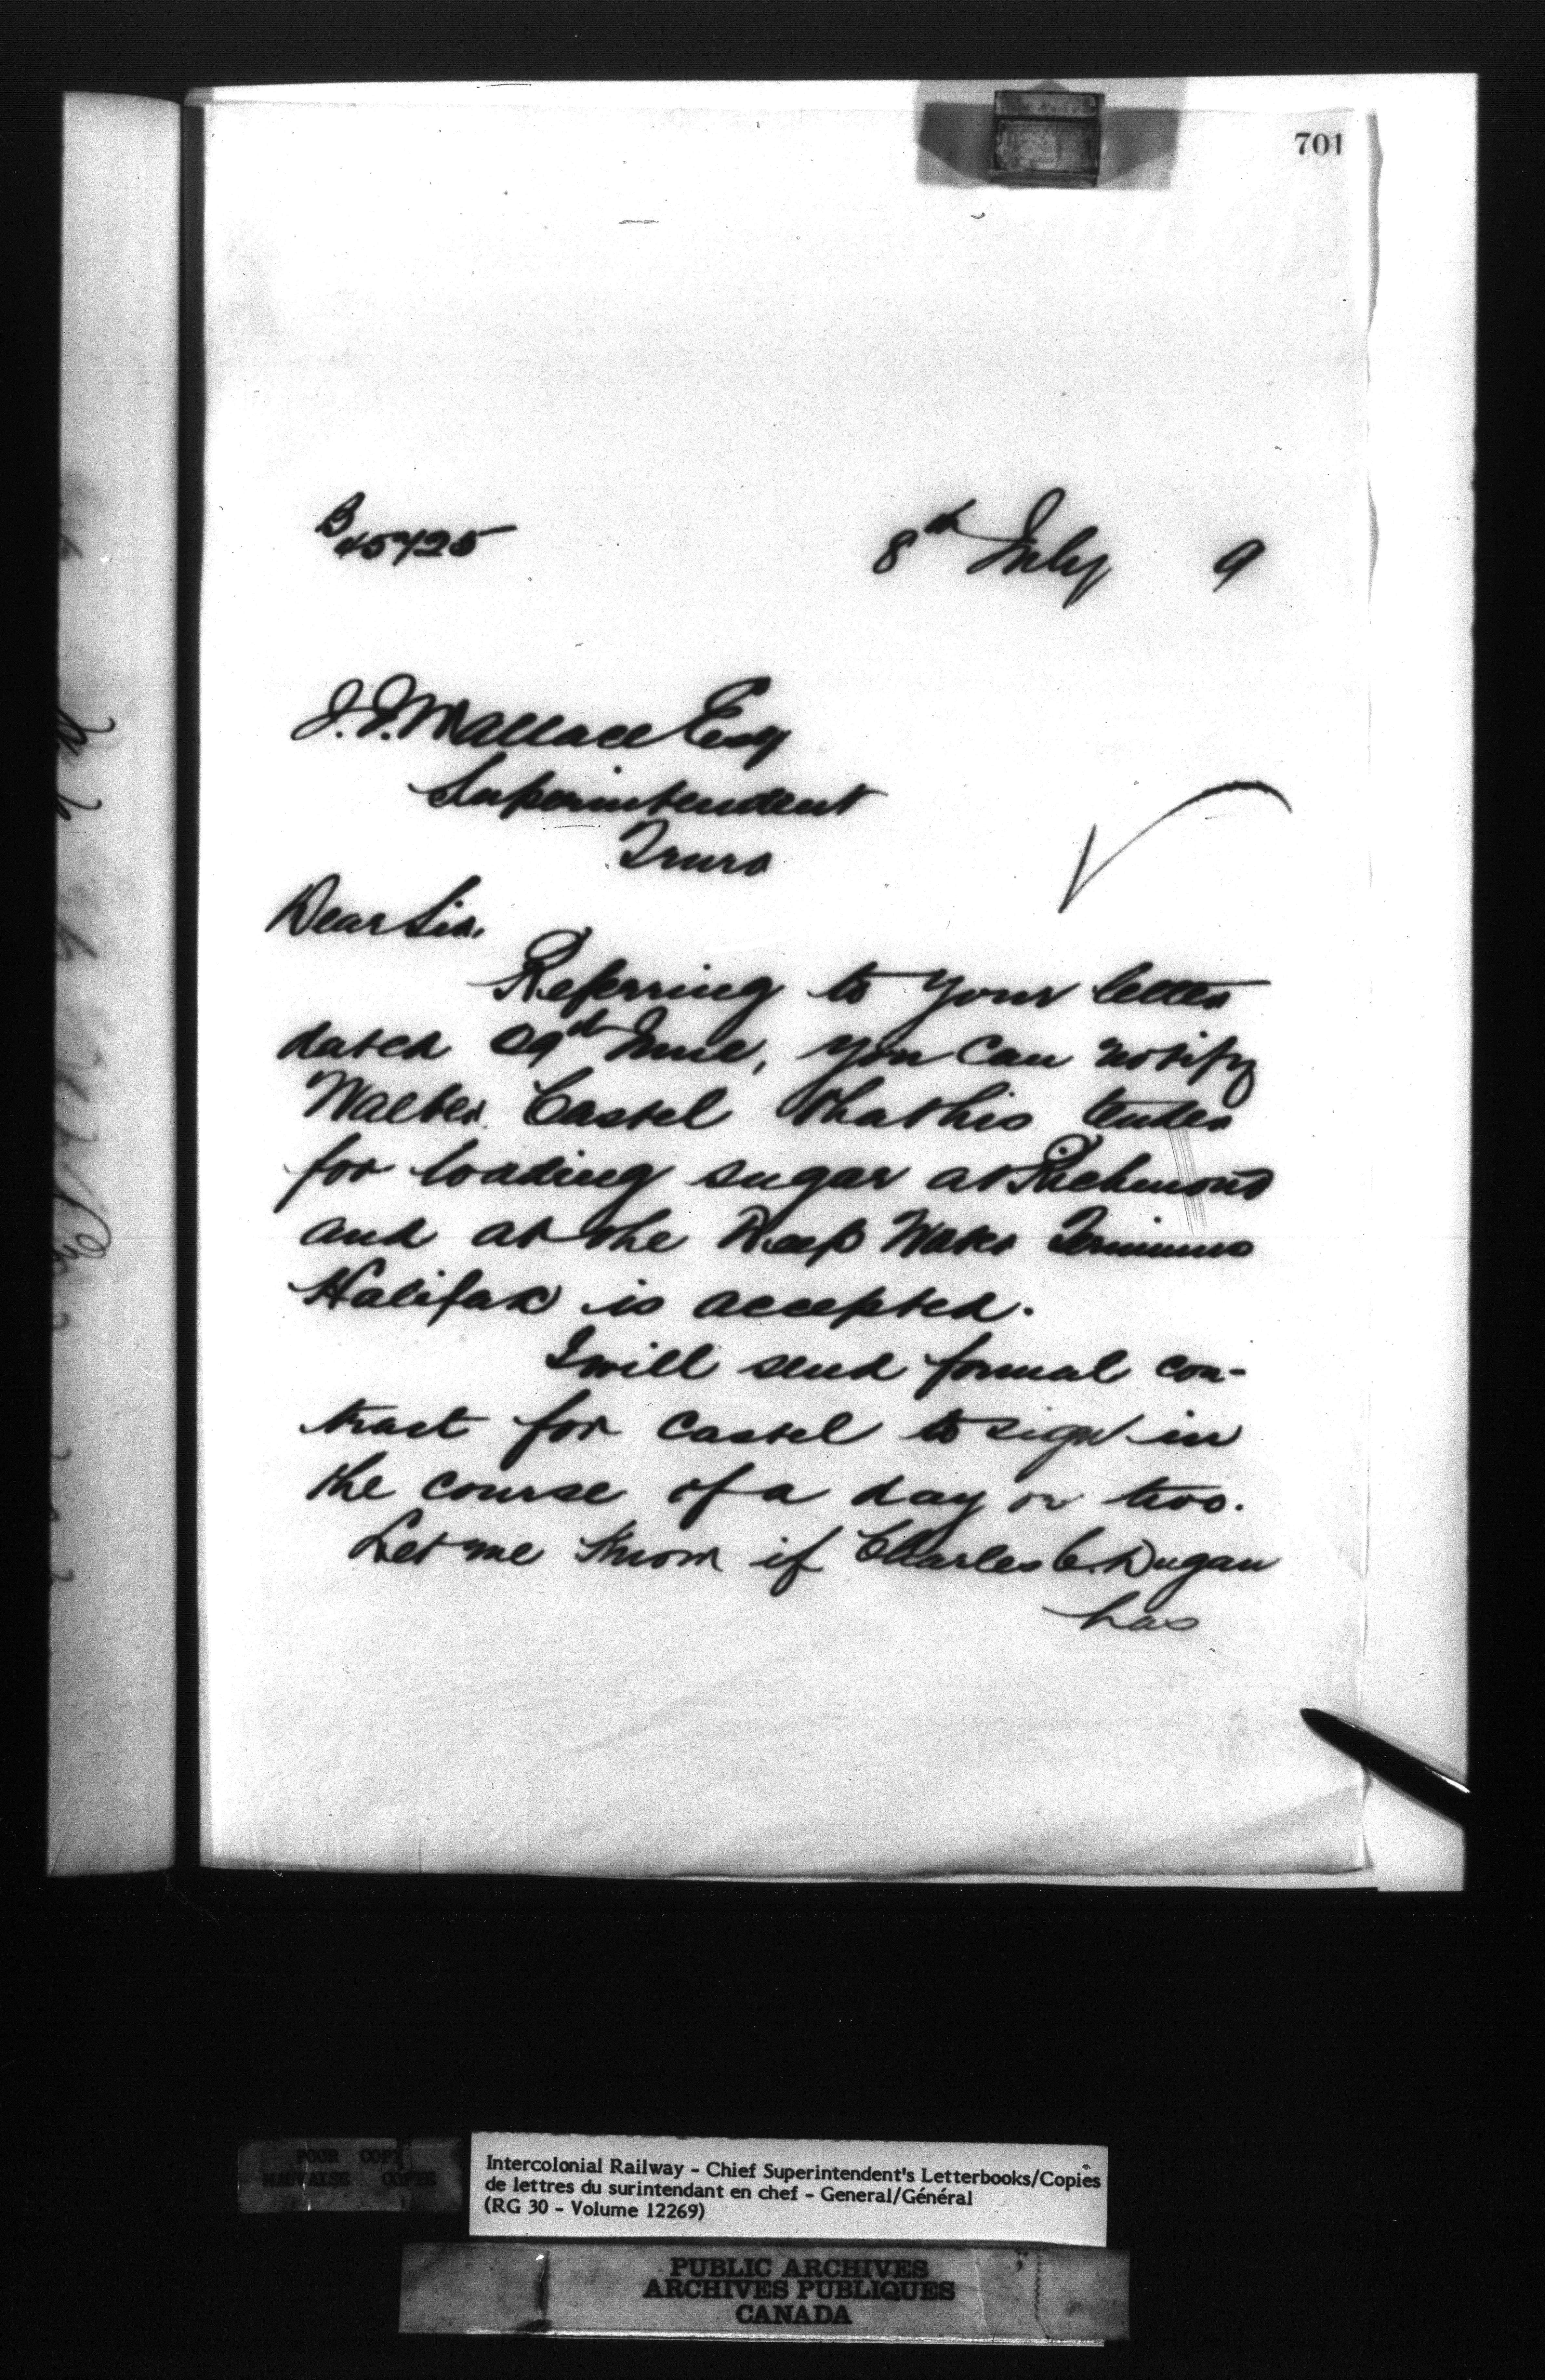 701
B 45725
8th July 9
J.J. Wallace Esq
Superintendent
Truro
Dear Sir,
Referring to your letter
dated 29th June, you can notify
Walter Castel that his tender
for loading sugar at Richmond
and at the Deep Water Terminus
Halifax is accepted.
I will send formal con-
tract for Castel to sign in
the course of a day or two.
Let me know if Charles C. Dugan
has
POOR COPY
MAUVAISE COPIE
Intercolonial Railway - Chief Superintendent's Letterbooks/Copies
de lettres du surintendant en chef - General/Général
(RG 30 - Volume 12269)
PUBLIC ARCHIVES
ARCHIVES PUBLIQUES
CANADA